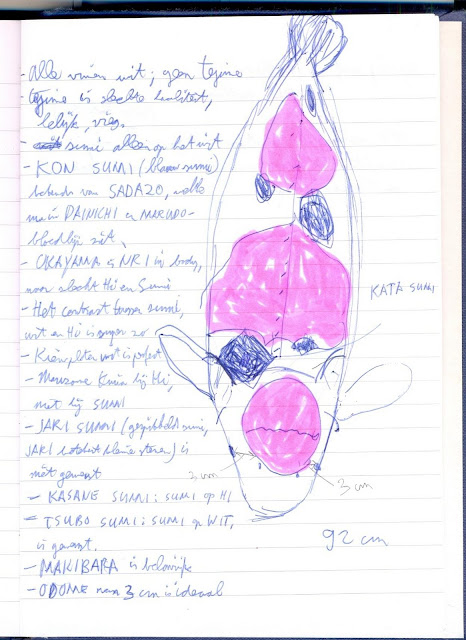 - alle vinnen wit; geen tejime
- tejime is slechte kwaliteit,
lelijk, vies.
- sumi alleen op het wit
- KON SUMI (blauwe sumi)
behalve van SADAZO, welke
meer DAINICHI en MARUDO-
bloedlijn zit.
- OKAYAMA is NR 1 in body,
maar slecht Hi en Sumi
- Het contrast tussen sumi,
wit en Hi is super zo
- Kleine plten wit is perfect
- Maruzone Kiwa bij Hi,
niet bij SUMI
- JARI SUMI (gespikkeld sumi,
JARI betekent kleine stenen) is
niet gewenst
- KASANE SUMI: SUMI op HI
- TSUBO SUMI: SUMI op WIT,
is gewenst.
- MAKIBARA is belangrijk
- ODOME van 3 cm is ideaal
KATA SUMI
3 cm
3 cm
92 cm